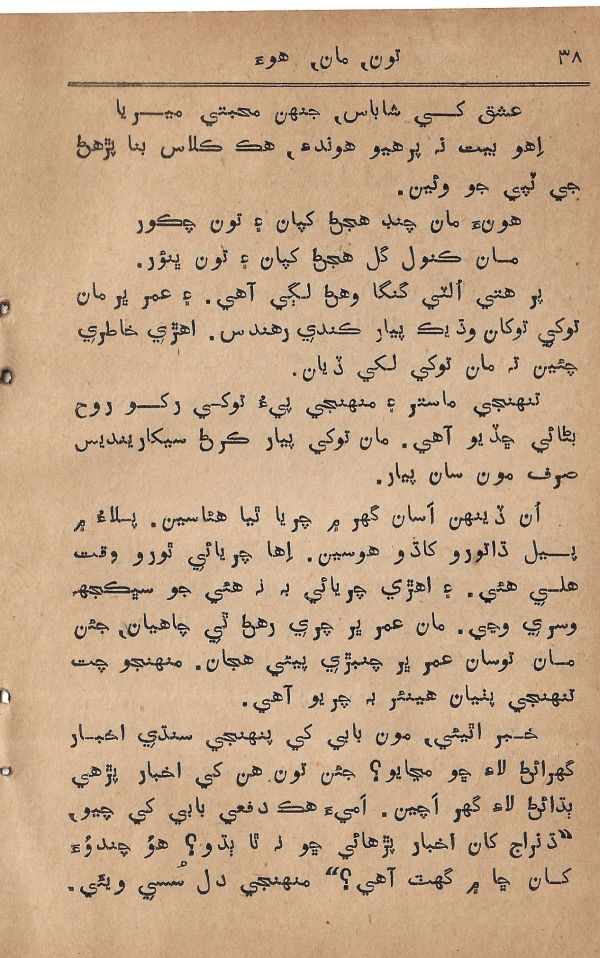 ۳۸
تون، مان، هوءَ
عشق کـــي شاباس، جنهن محبتي ميــريا
اِهو بيت نہ پرهيو هوندءِ، هڪ ڪلاس بنا پڙهڻ
جي ٽپي جو وئين.
هونءَ مان چنڊ هجڻ کپان ۽ تون چڪور
مــان ڪنول گل هجڻ کپان ۽ تون ڀنؤر.
پر هتي اُلٽي گنگا وهڻ لڳي آهي. ۽ عمر ڀر مان
توکي توکان وڌيڪ پيار ڪندي رهندس. اهڙي خاطري
چئين تہ مان توکي لکي ڏيان.
تنهنجي ماستر ۽ منهنجي پيءُ توکــي رکــو روح
بڻائي ڇڏيو آهي. مان توکي پيار ڪرڻ سيکاريندیس
صرف مون سان پيار.
اُن ڏينهن اَسان گهر ۾ چريا ٿيا هئاسين. پــلاءُ ۾
پــيل ڌاتورو کاڌو هوسين. اِها چريائي ٿورو وقت
هلــي هئي. ۽ اهڙي چريائي بہ نہ هئي جو سڀڪجهہ
وسري وڃي. مان عمر ڀر چري رهڻ ٿي چاهيان، جئن
مــان توسان عمر ڀر چنبڙي پيٽي هجان. منهنجو چت
تنهنجي پٺيان هينئر بہ چريو آهي.
خــبر اٿيئي، مون بابي کي پنهنجي سنڌي اخبــار
گهرائڻ لاءِ ڇو مڃايو؟ جئن تون هن کي اخبار پڙهي
ٻڌائڻ لاءِ گهر اَچين. اَميءَ هڪ دفعي بابي کي چيو،
”ڌنراج کان اخبار پڙهائي ڇو نہ ٿا ٻڌو؟ هوُ چندوُءَ
کــان ڇا ۾ گهٽ آهي؟“ منهنجي دل سُسي ويئي.